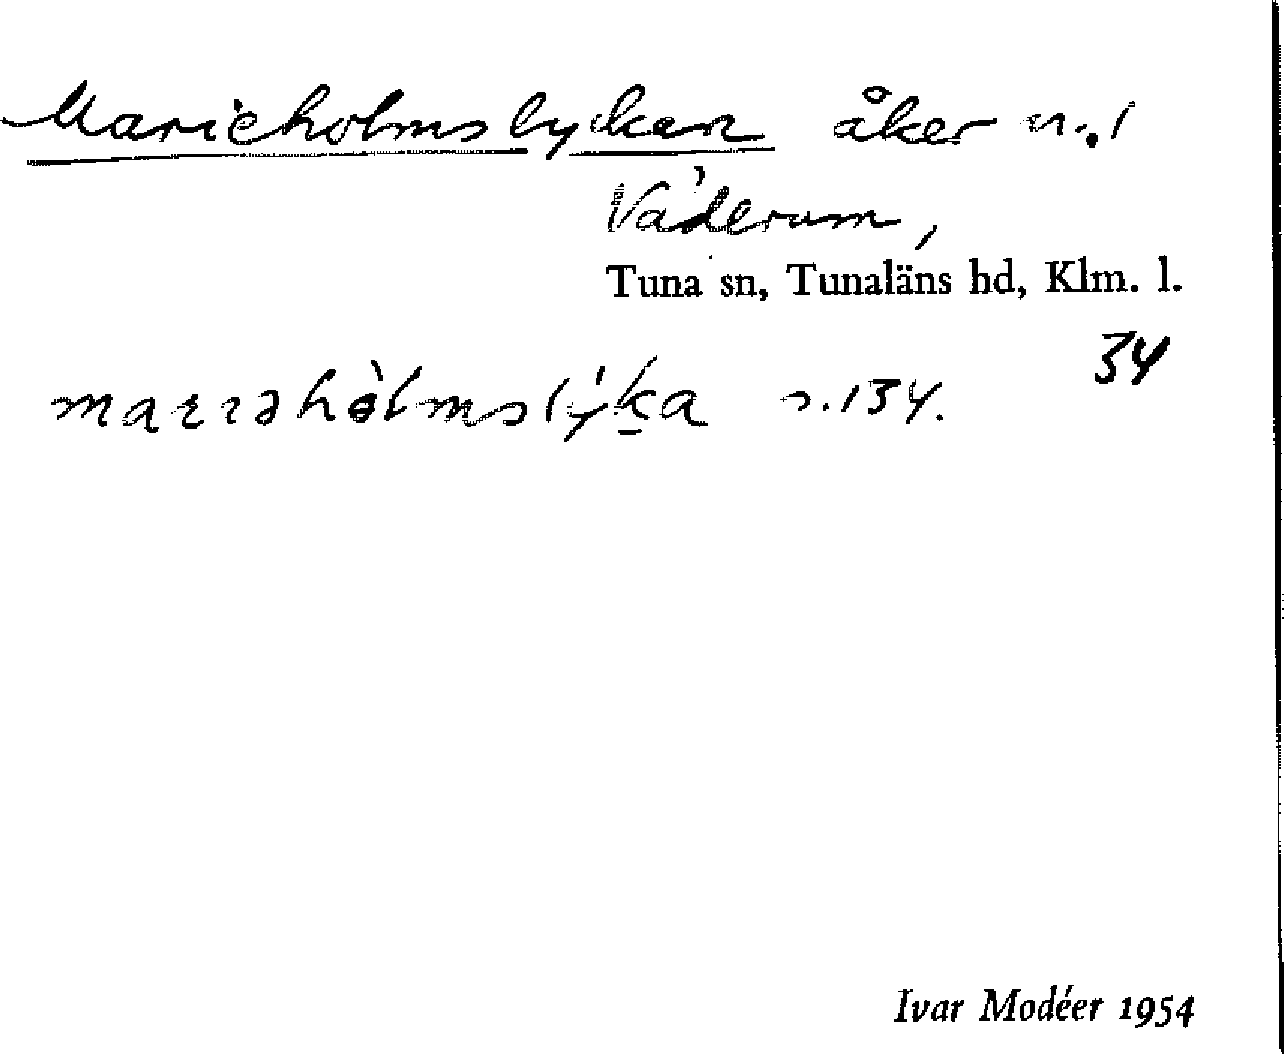 Marieholmslyckan åker n.1
Väderum,
Tuna sn, Tunaläns hd, Klm. l.
34
s.134.
Ivar Modéer 1954